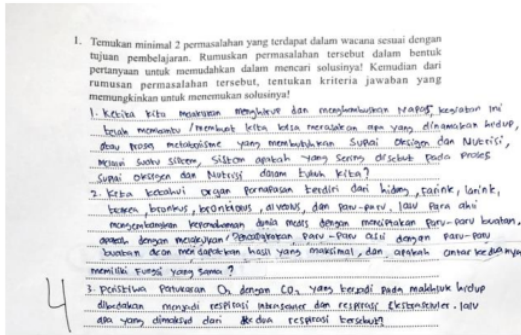 1. Temukan minimal 2 permasalahan yang terdapat dalam wacana sesuai dengan
tujuan pembelajaran. Rumuskan permasalahan tersebut dalam bentuk
pertanyaan untuk memudahkan dalam mencari solusinya! Kemudian dari
rumusan permasalahan tersebut, tentukan kriteria jawaban yang
memungkinkan untuk menemukan solusinya!
1. Ketika kita melakukan menghirup dan menghembuskan napas, kegiatan ini
telah membantu / membuat kita bisa merasakan apa yang dinamakan hidup,
atau proses metabolisme yang membutuhkan suplai oksigen dan nutrisi,
melalui suatu sistem, sistem apakah yang sering disebut pada proses
suplai oksigen dan nutrisi dalam tubuh kita?
2. Kita ketahui organ pernapasan terdiri dari hidung, faring, laring,
trakea, bronkus, bronkiolus, alveolus, dan paru-paru, lalu para ahli
mengembangkan dunia medis dengan menciptakan paru-paru buatan,
apakah dengan melakukan / paru-paru asli dengan paru-paru
buatan akan mendapatkan hasil yang maksimal, dan apakah antar keduanya
memiliki fungsi yang sama?
3. Peristiwa pertukaran O2 dengan CO2 yang terjadi pada makhluk hidup
dibedakan menjadi respirasi dan respirasi . lalu
apa yang dimaksud dari kedua respirasi tersebut?
4